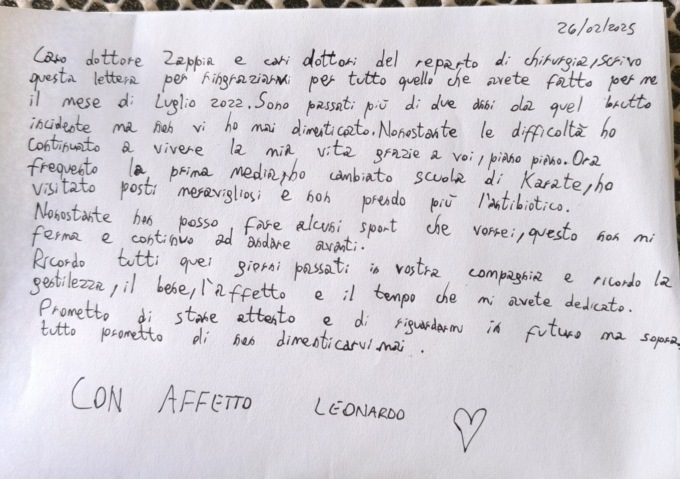 26/02/2025
Caro dottore Zappia e cari dottori del reparto di chirurgia, scrivo
questa lettera per ringraziarvi per tutto quello che avete fatto per me
il mese di Luglio 2022. Sono passati più di due anni da quel brutto
incidente ma non vi ho mai dimenticato. Nonostante le difficoltà ho
continuato a vivere la mia vita grazie a voi, piano piano. Ora
frequento la prima media, ho cambiato scuola di Karate, ho
visitato posti meravigliosi e non prendo più l'antibiotico.
Nonostante non posso fare alcuni sport che vorrei, questo non mi
ferma e continuo ad andare avanti.
Ricordo tutti quei giorni passati in vostra compagnia e ricordo la
gestilezza, il bene, l'affetto e il tempo che mi avete dedicato.
Prometto di stare attento e di riguardarmi in futuro ma sopra
tutto prometto di non dimenticarvi mai.
CON AFFETTO LEONARDO